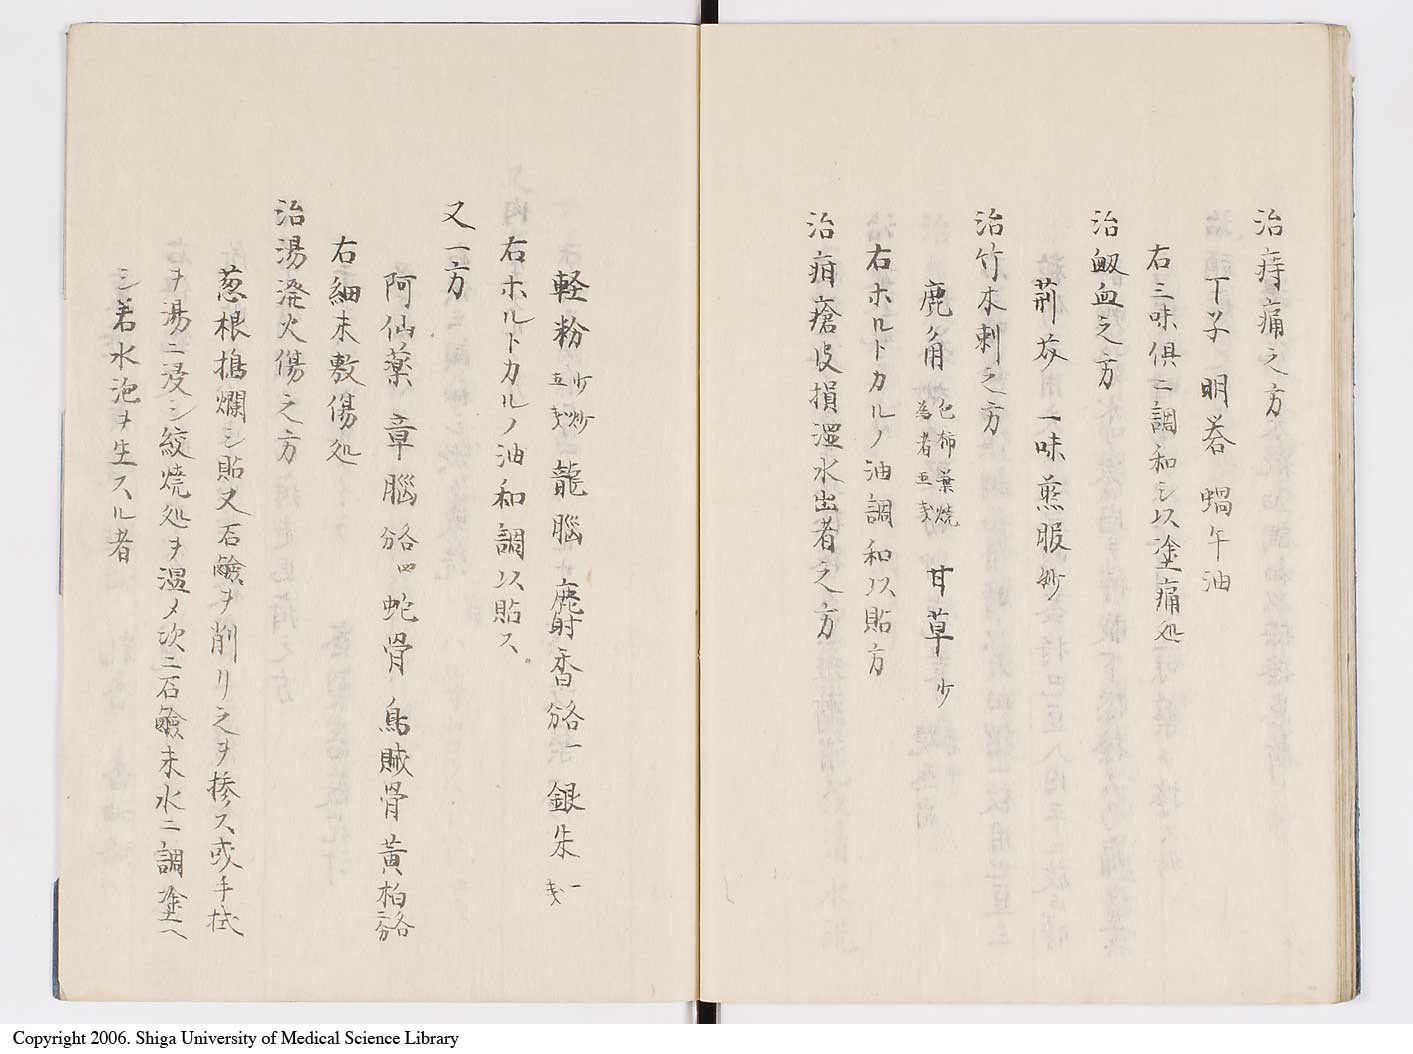 治痔痛之方
丁子 明礬 蝸牛油
右三味倶ニ調和シ以塗痛処
治衂血之方
荊芥一味煎服妙
治竹木刺之方
鹿角 包柿葉焼為者五戔 甘草 少
右ホルトカルノ油調和以貼方
治疳瘡皮損湿水出者之方
軽粉 少炒五戔 龍脳 麝香 各一分 銀朱 一戔
右ホルトカルノ油和調以貼ス
又一方
阿仙薬 章脳 各四分 蛇骨 烏賊骨 黄柏 各二分
右細末敷傷処
治湯溌火傷之方
葱根搗爛シ貼又石鹸ヲ削リ之ヲ摻ス或手拭
ヲ湯ニ浸シ絞焼処ヲ温メ次ニ石鹸末水ニ調塗ヘ
シ若水泡ヲ生スル者
Copyright 2006. Shiga University of Medical Science Library